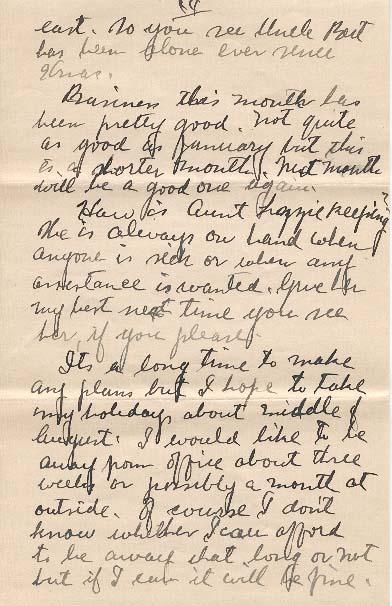 east. So you see Uncle Bert
has been alone ever since
Xmas.
Business this month has
been pretty good. Not quite
as good as January but this
is a shorter month. Next month
will be a good one again.
How is Aunt keeping?
She is always on hand when
anyone is sick or when any
assistance is wanted. Give her
my best next time you see
her, if you please.
Its a long time to make
any plans but I hope to take
my holidays about middle of
August. I would like to be
away from office about three
weeks or possibly a month at
outside. Of course I don't
know whether I can afford
to be away that long or not
but if I can it will be fine.